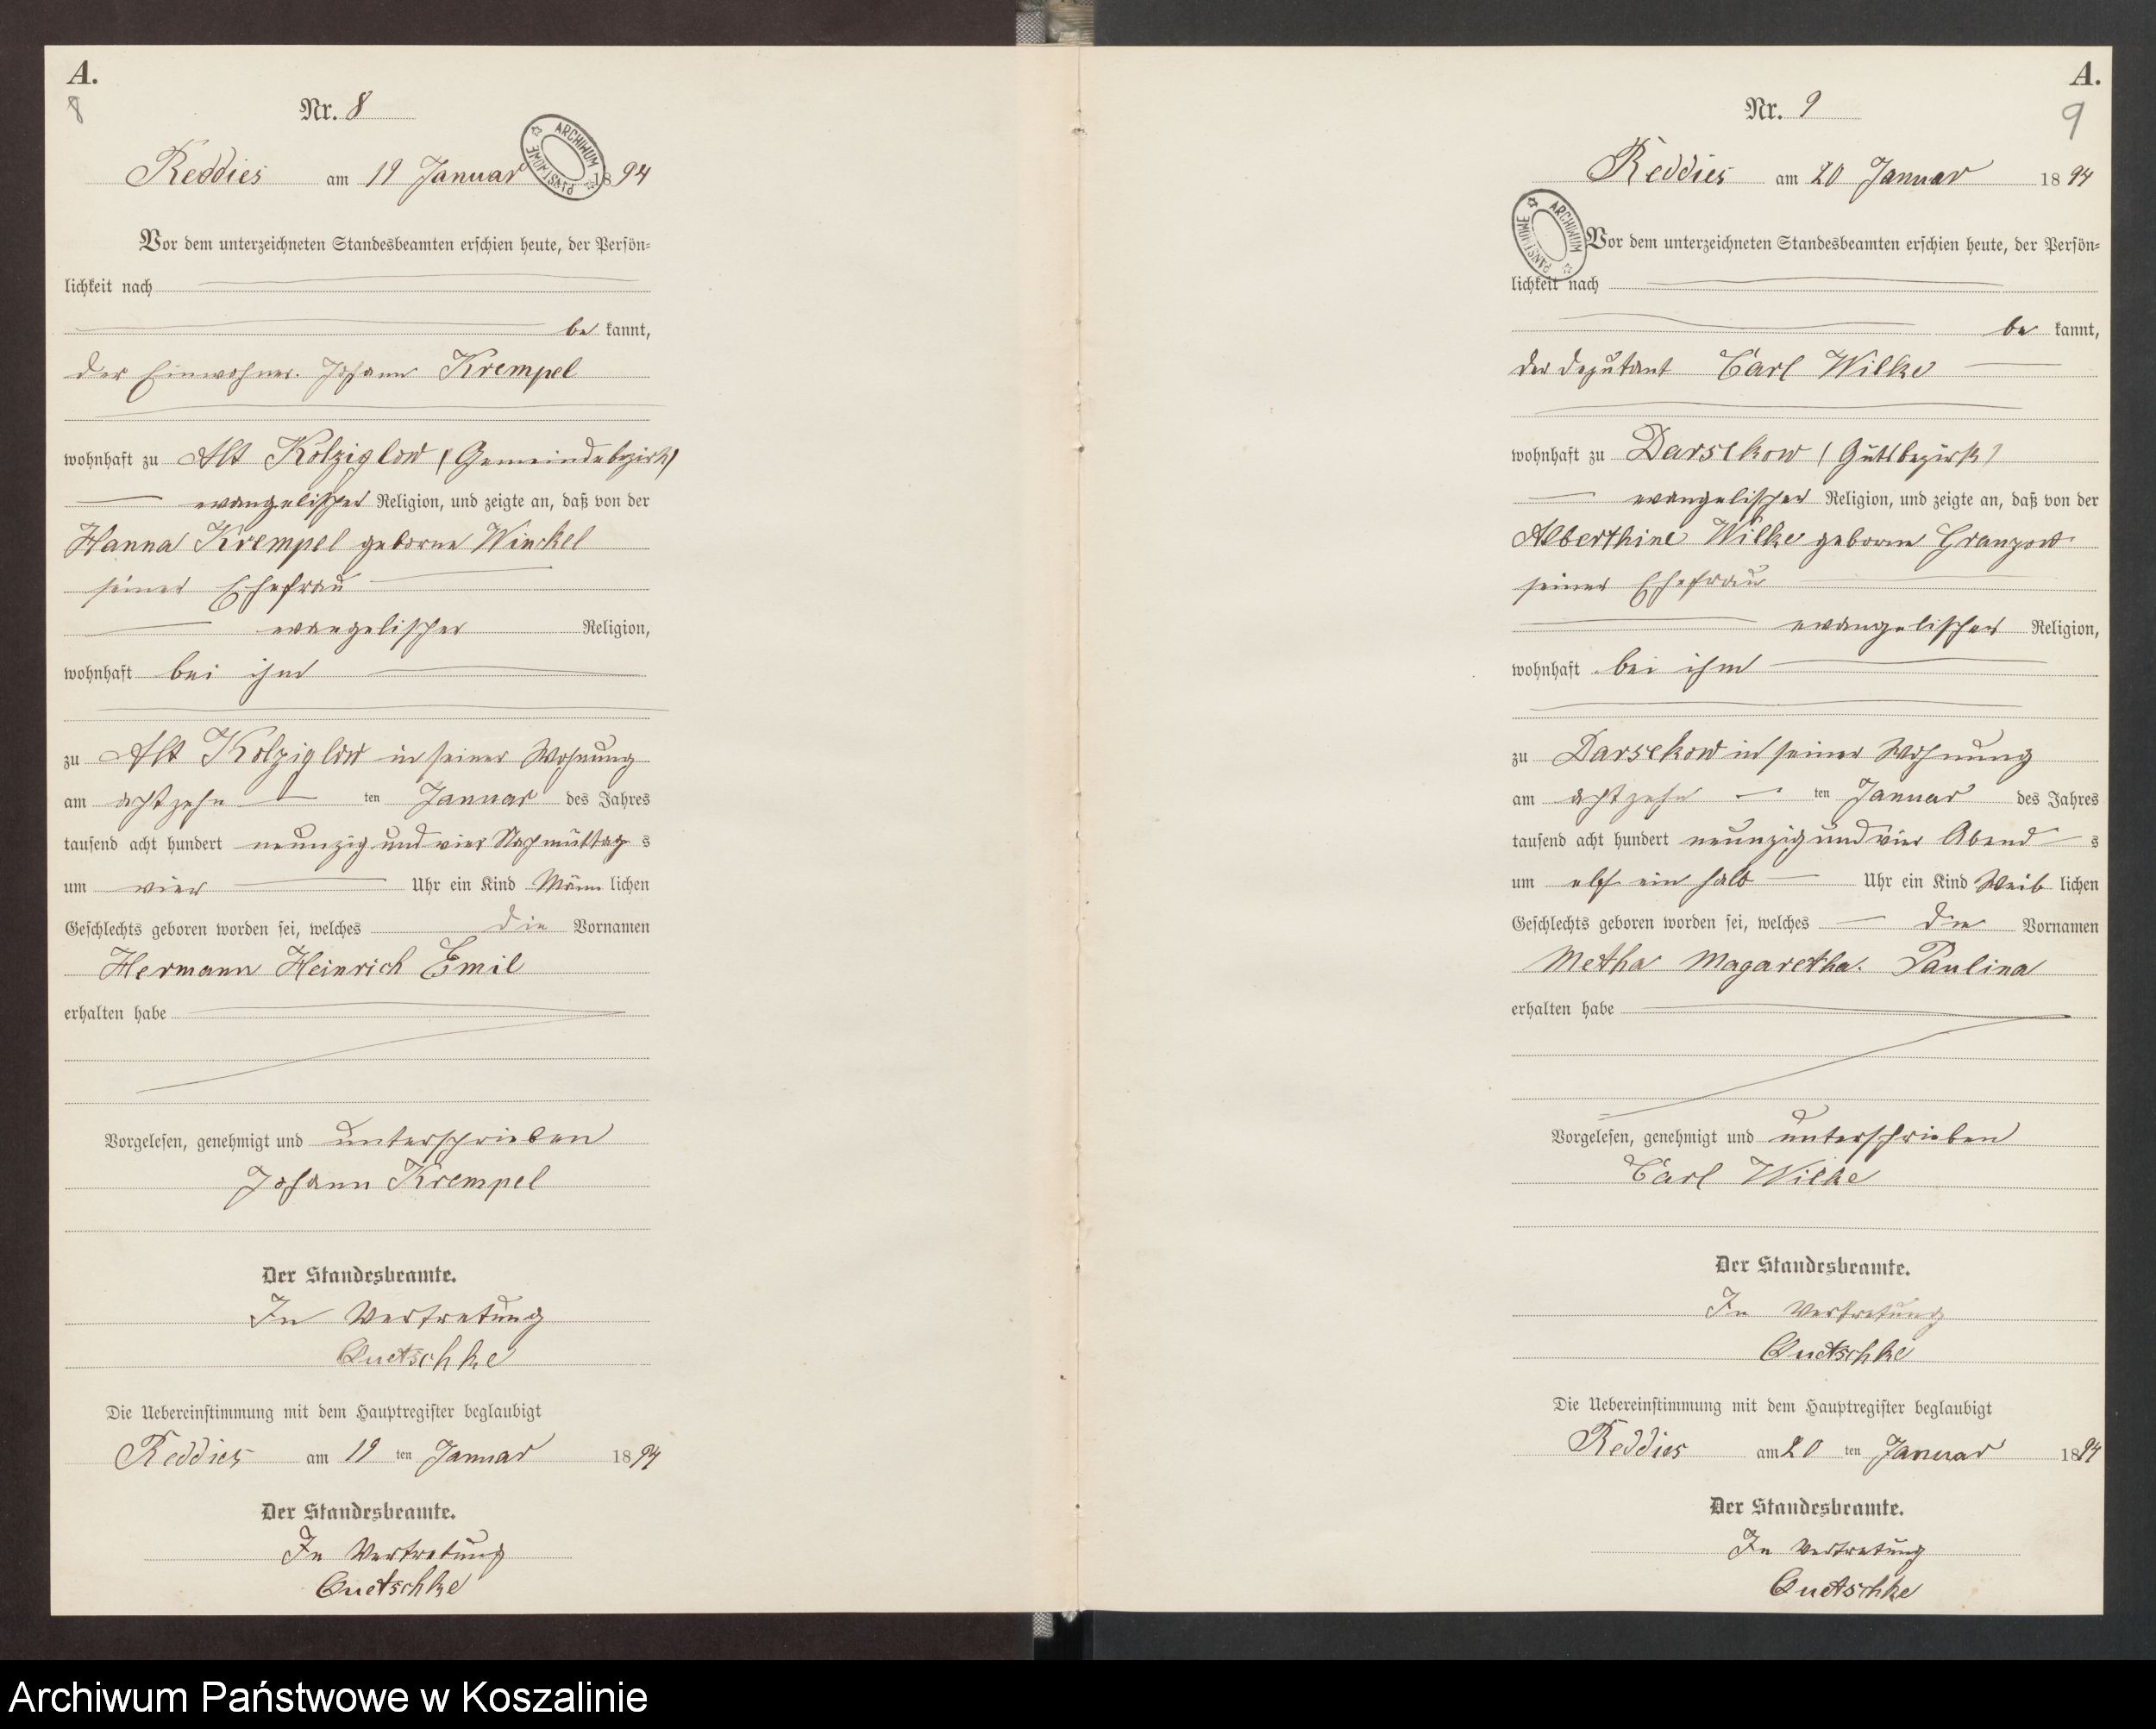 A.
8
Nr. 8
ARCHIWUM PAŃSTWOWE
Reddies am 19 Januar 1894
Vor dem unterzeichneten Standesbeamten erschien heute, der Persön-
lichkeit nach
be kannt,
der Einwohner Johann Krempel
wohnhaft zu Alt Kolziglow (Gemeindebezirk)
evangelischer Religion, und zeigte an, daß von der
Hanna Krempel geborne Winckel
seiner Ehefrau
evangelischer Religion,
wohnhaft bei ihm
zu Alt Kolziglow in seiner Wohnung
am achtzehn ten Januar des Jahres
tausend acht hundert neunzig und vier Nachmittag s
um vier Uhr ein Kind Männ lichen
Geschlechts geboren worden sei, welches die Vornamen
Hermann Heinrich Emil
erhalten habe
Vorgelesen, genehmigt und unterschrieben
Johann Krempel
Der Standesbeamte.
In Vertretung
Quetschke
Die Uebereinstimmung mit dem Hauptregister beglaubigt
Reddies am 19 ten Januar 1894
Der Standesbeamte.
In Vertretung
Quetschke
A.
9
Nr. 9
Reddies am 20 Januar 1894
ARCHIWUM PAŃSTWOWE
Vor dem unterzeichneten Standesbeamten erschien heute, der Persön-
lichkeit nach
be kannt,
der Deputant Carl Wilke
wohnhaft zu Darsekow (Gutsbezirk)
evangelischer Religion, und zeigte an, daß von der
Alberthine Wilke geborne Granzow
seiner Ehefrau
evangelischer Religion,
wohnhaft bei ihm
zu Darsekow in seiner Wohnung
am achtzehn ten Januar des Jahres
tausend acht hundert neunzig und vier Abend s
um elf ein halb Uhr ein Kind Weib lichen
Geschlechts geboren worden sei, welches die Vornamen
Metha Magaretha Paulina
erhalten habe
Vorgelesen, genehmigt und unterschrieben
Carl Wilke
Der Standesbeamte.
In Vertretung
Quetschke
Die Uebereinstimmung mit dem Hauptregister beglaubigt
Reddies am 20 ten Januar 1894
Der Standesbeamte.
In Vertretung
Quetschke
Archiwum Państwowe w Koszalinie